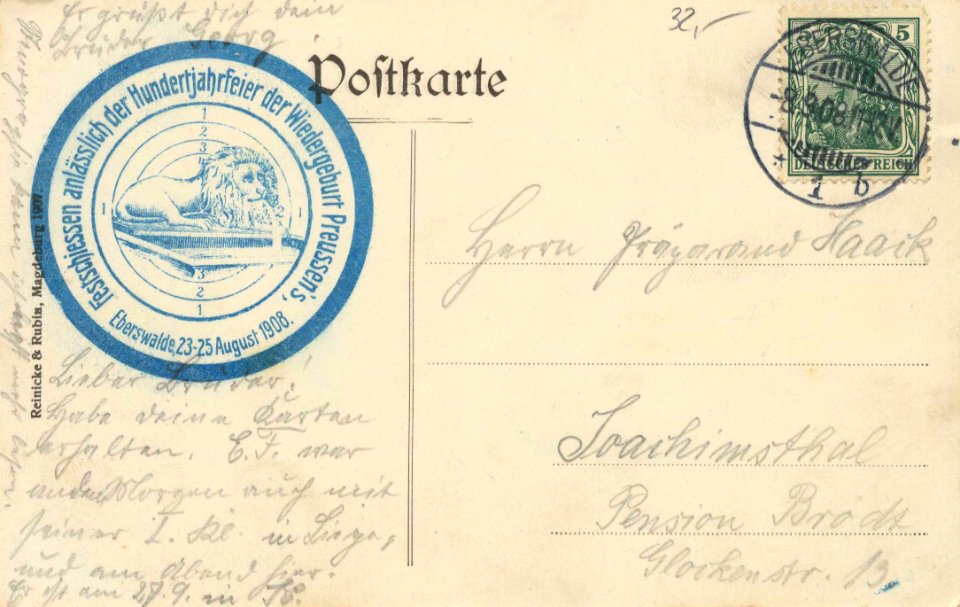 Er grüßt dich dein
Bruder Georg.
32,-
Postkarte
EBERSWALDE
1 b
5
DEUTSCHES REICH
Festschiessen anlässlich der Hundertjahrfeier der Wiedergeburt Preussen's,
Eberswalde, 23-25 August 1908.
1
2
3
4
1
1
3
2
1
Reinicke & Rubin, Magdeburg 1907.
Herrn Präparand Haack
Joachimsthal
Pension Brodt
Glockenstr. 13
Lieber Bruder!
Habe deine Karten
erhalten. E. F. war
Morgen auch mit
seiner I. Kl. in
und am Abend hier.
Er ist am 27.9. in